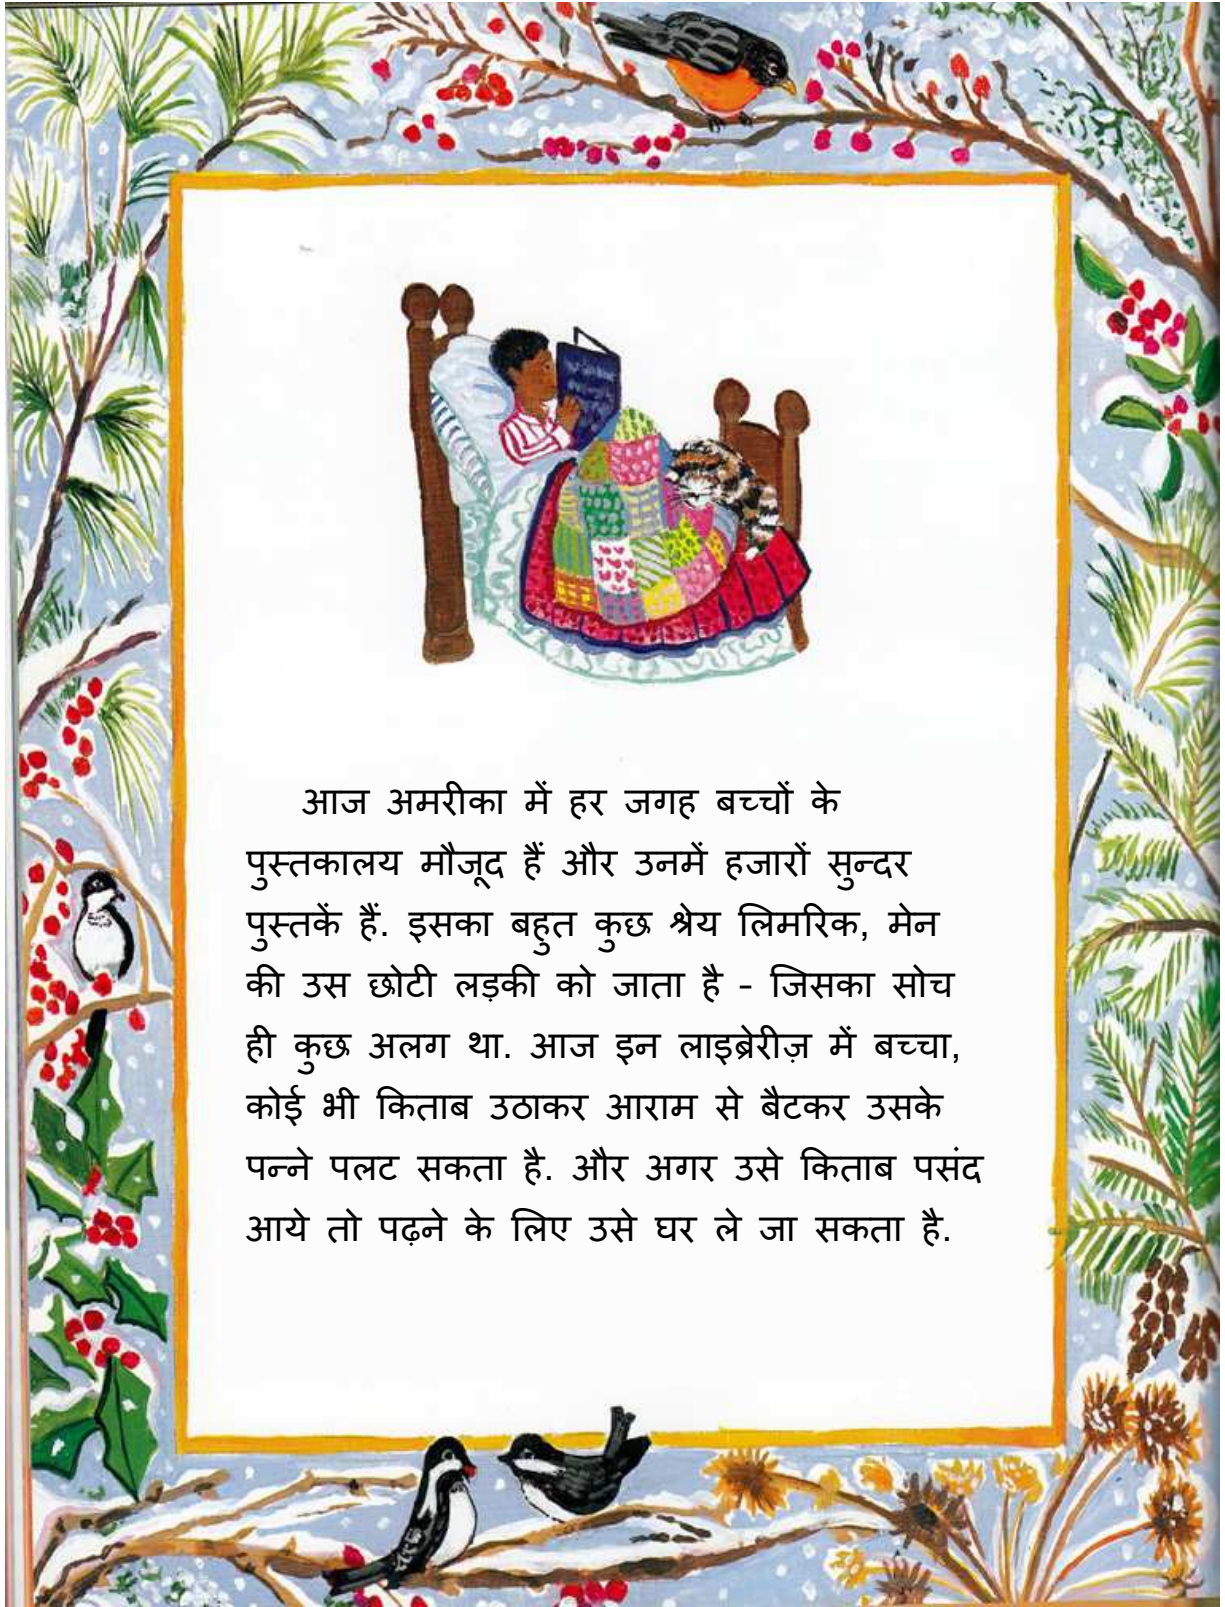 आज अमरीका में हर जगह बच्चों के
पुस्तकालय मौजूद हैं और उनमें हजारों सुन्दर
पुस्तकें हैं. इसका बहुत कुछ श्रेय लिमरिक, मेन
की उस छोटी लड़की को जाता है – जिसका सोच
ही कुछ अलग था. आज इन लाइब्रेरीज़ में बच्चा,
कोई भी किताब उठाकर आराम से बैटकर उसके
पन्ने पलट सकता है. और अगर उसे किताब पसंद
आये तो पढ़ने के लिए उसे घर ले जा सकता है.